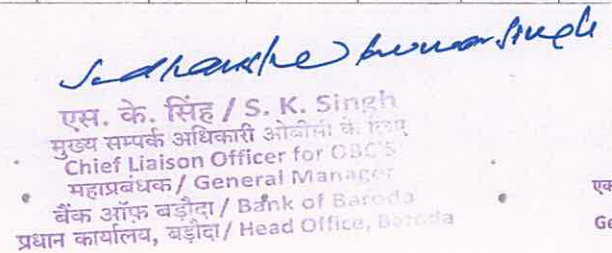 Sudhanshu Kumar Singh
एस. के. सिंह / S. K. Singh
मुख्य सम्पर्क अधिकारी ओबीसी के लिए
Chief Liaison Officer for OBC'S
महाप्रबंधक / General Manager
एक
बैंक ऑफ़ बड़ौदा / Bank of Baroda
Ge
प्रधान कार्यालय, बड़ौदा / Head Office, Baroda